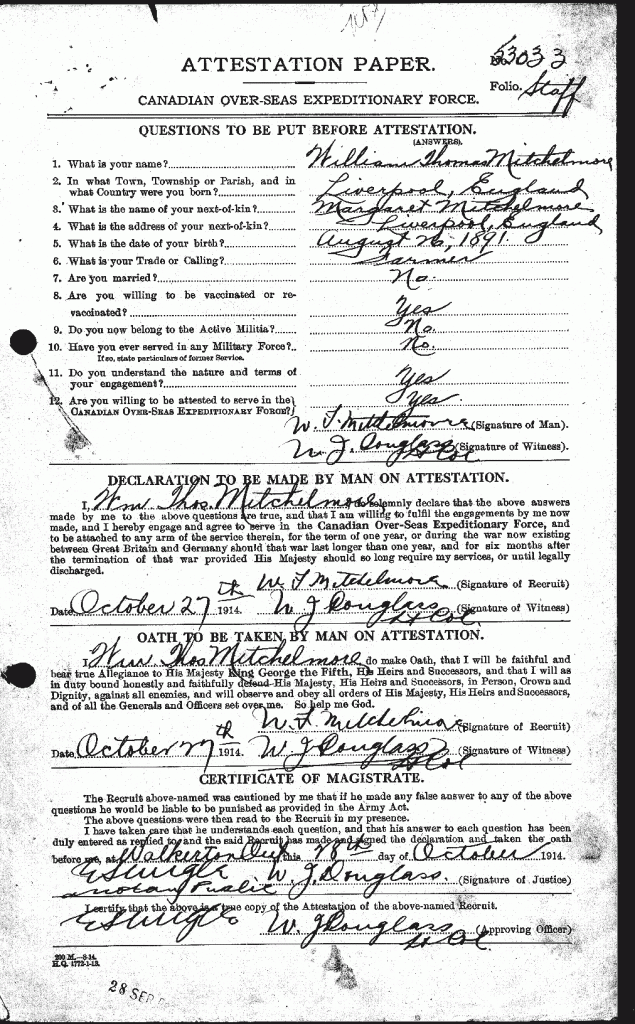 ATTESTATION PAPER.
No. 53033
Folio. Staff
CANADIAN OVER-SEAS EXPEDITIONARY FORCE.
QUESTIONS TO BE PUT BEFORE ATTESTATION.
(ANSWERS).
1. What is your name? William Thomas Mitchelmore
2. In what Town, Township or Parish, and in
what Country were you born? Liverpool, England
3. What is the name of your next-of-kin? Margaret Mitchelmore
4. What is the address of your next-of-kin? Liverpool, England
5. What is the date of your birth? August 26, 1891.
6. What is your Trade or Calling? Farmer
7. Are you married? No.
8. Are you willing to be vaccinated or re-
vaccinated? Yes
9. Do you now belong to the Active Militia? No.
10. Have you ever served in any Military Force? No.
If so, state particulars of former Service.
11. Do you understand the nature and terms of
your engagement? Yes
12. Are you willing to be attested to serve in the
CANADIAN OVER-SEAS EXPEDITIONARY FORCE? Yes
W. T. Mitchelmore (Signature of Man).
W. J. Douglass Lt Col (Signature of Witness).
DECLARATION TO BE MADE BY MAN ON ATTESTATION.
I, Wm Thos. Mitchelmore, do solemnly declare that the above answers
made by me to the above questions are true, and that I am willing to fulfil the engagements by me now
made, and I hereby engage and agree to serve in the Canadian Over-Seas Expeditionary Force, and
to be attached to any arm of the service therein, for the term of one year, or during the war now existing
between Great Britain and Germany should that war last longer than one year, and for six months after
the termination of that war provided His Majesty should so long require my services, or until legally
discharged.
W. T. Mitchelmore (Signature of Recruit)
Date October 27th 1914. W J Douglass Lt Col (Signature of Witness)
OATH TO BE TAKEN BY MAN ON ATTESTATION.
I, Wm Thos Mitchelmore do make Oath, that I will be faithful and
bear true Allegiance to His Majesty King George the Fifth, His Heirs and Successors, and that I will as
in duty bound honestly and faithfully defend His Majesty, His Heirs and Successors, in Person, Crown and
Dignity, against all enemies, and will observe and obey all orders of His Majesty, His Heirs and Successors,
and of all the Generals and Officers set over me. So help me God.
W. T. Mitchelmore (Signature of Recruit)
Date October 27th 1914. W J Douglass Lt Col (Signature of Witness)
CERTIFICATE OF MAGISTRATE.
The Recruit above-named was cautioned by me that if he made any false answer to any of the above
questions he would be liable to be punished as provided in the Army Act.
The above questions were then read to the Recruit in my presence.
I have taken care that he understands each question, and that his answer to each question has been
duly entered as replied to, and the said Recruit has made and signed the declaration and taken the oath
before me, at Walkerton Ont this 28th day of October 1914.
W. J. Douglass. (Signature of Justice)
Notary Public
I certify that the above is a true copy of the Attestation of the above-named Recruit.
W. J Douglass Lt Col (Approving Officer)
200 M.—8-14.
H.Q. 1772-1-13.
28 SEP